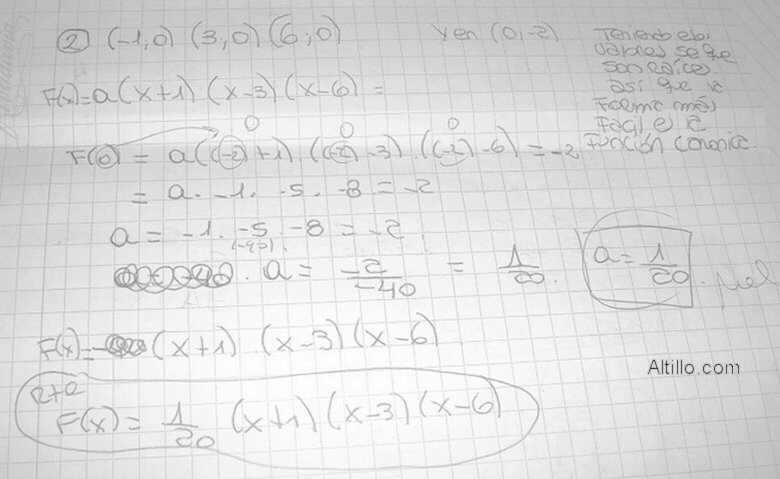 2 (-1,0) (3,0) (6,0) y en (0,-2)
Teniendo el o los
valores se que
son raíces
así que la
forma más
fácil es la
función canonica
F(x)=a(x+1).(x-3)(x-6)=
0 0 0
F(0) = a((-2)+1).((-2)-3).((-2)-6)=-2
= a. -1. -5. -8 = -2
a = -1. -5. -8 = -2
(-40)
. a = -2/-40 = 1/20.
a = 1/20
F(x)=-(x+1).(x-3)(x-6)
Altillo.com
Rta
F(x) = 1/20 (x+1)(x-3)(x-6)